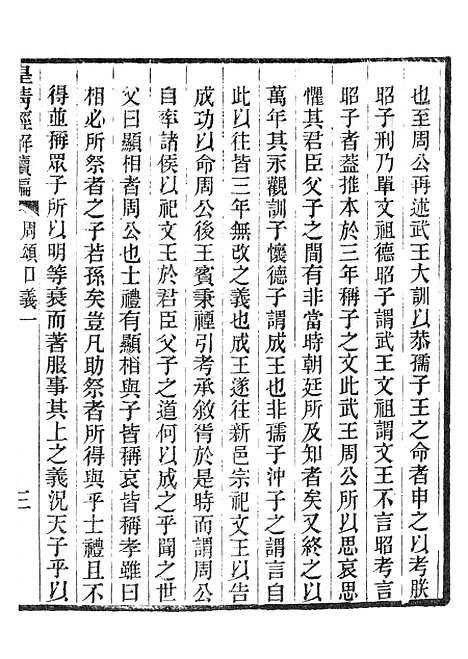 也至周公再述武王大訓以恭孺子王之命者申之以考朕
昭子刑乃單文祖德昭子謂武王文祖謂文王不言昭考言
昭子者蓋推本於三年稱子之文此武王周公所以思哀思
懼其君臣父子之間有非當時朝廷所及知者矣又終之以
萬年其永觀訓子懷德子謂成王也非孺子沖子之謂言自
此以往皆三年無改之義也成王遂往新邑宗祀文王以告
成功以命周公後王賓秉禋引考承敘胥於是時而謂周公
自率諸侯以祀文王於君臣父子之道何以成之乎聞之世
父曰顯相者周公也士禮有顯相與子皆稱哀皆稱孝雖曰
相必所祭者之子若孫矣豈凡助祭者所得與乎士禮且不
得並稱眾子所以明等衰而著服事其上之義況天子乎以
皇清經解續編
周頌口義一
三